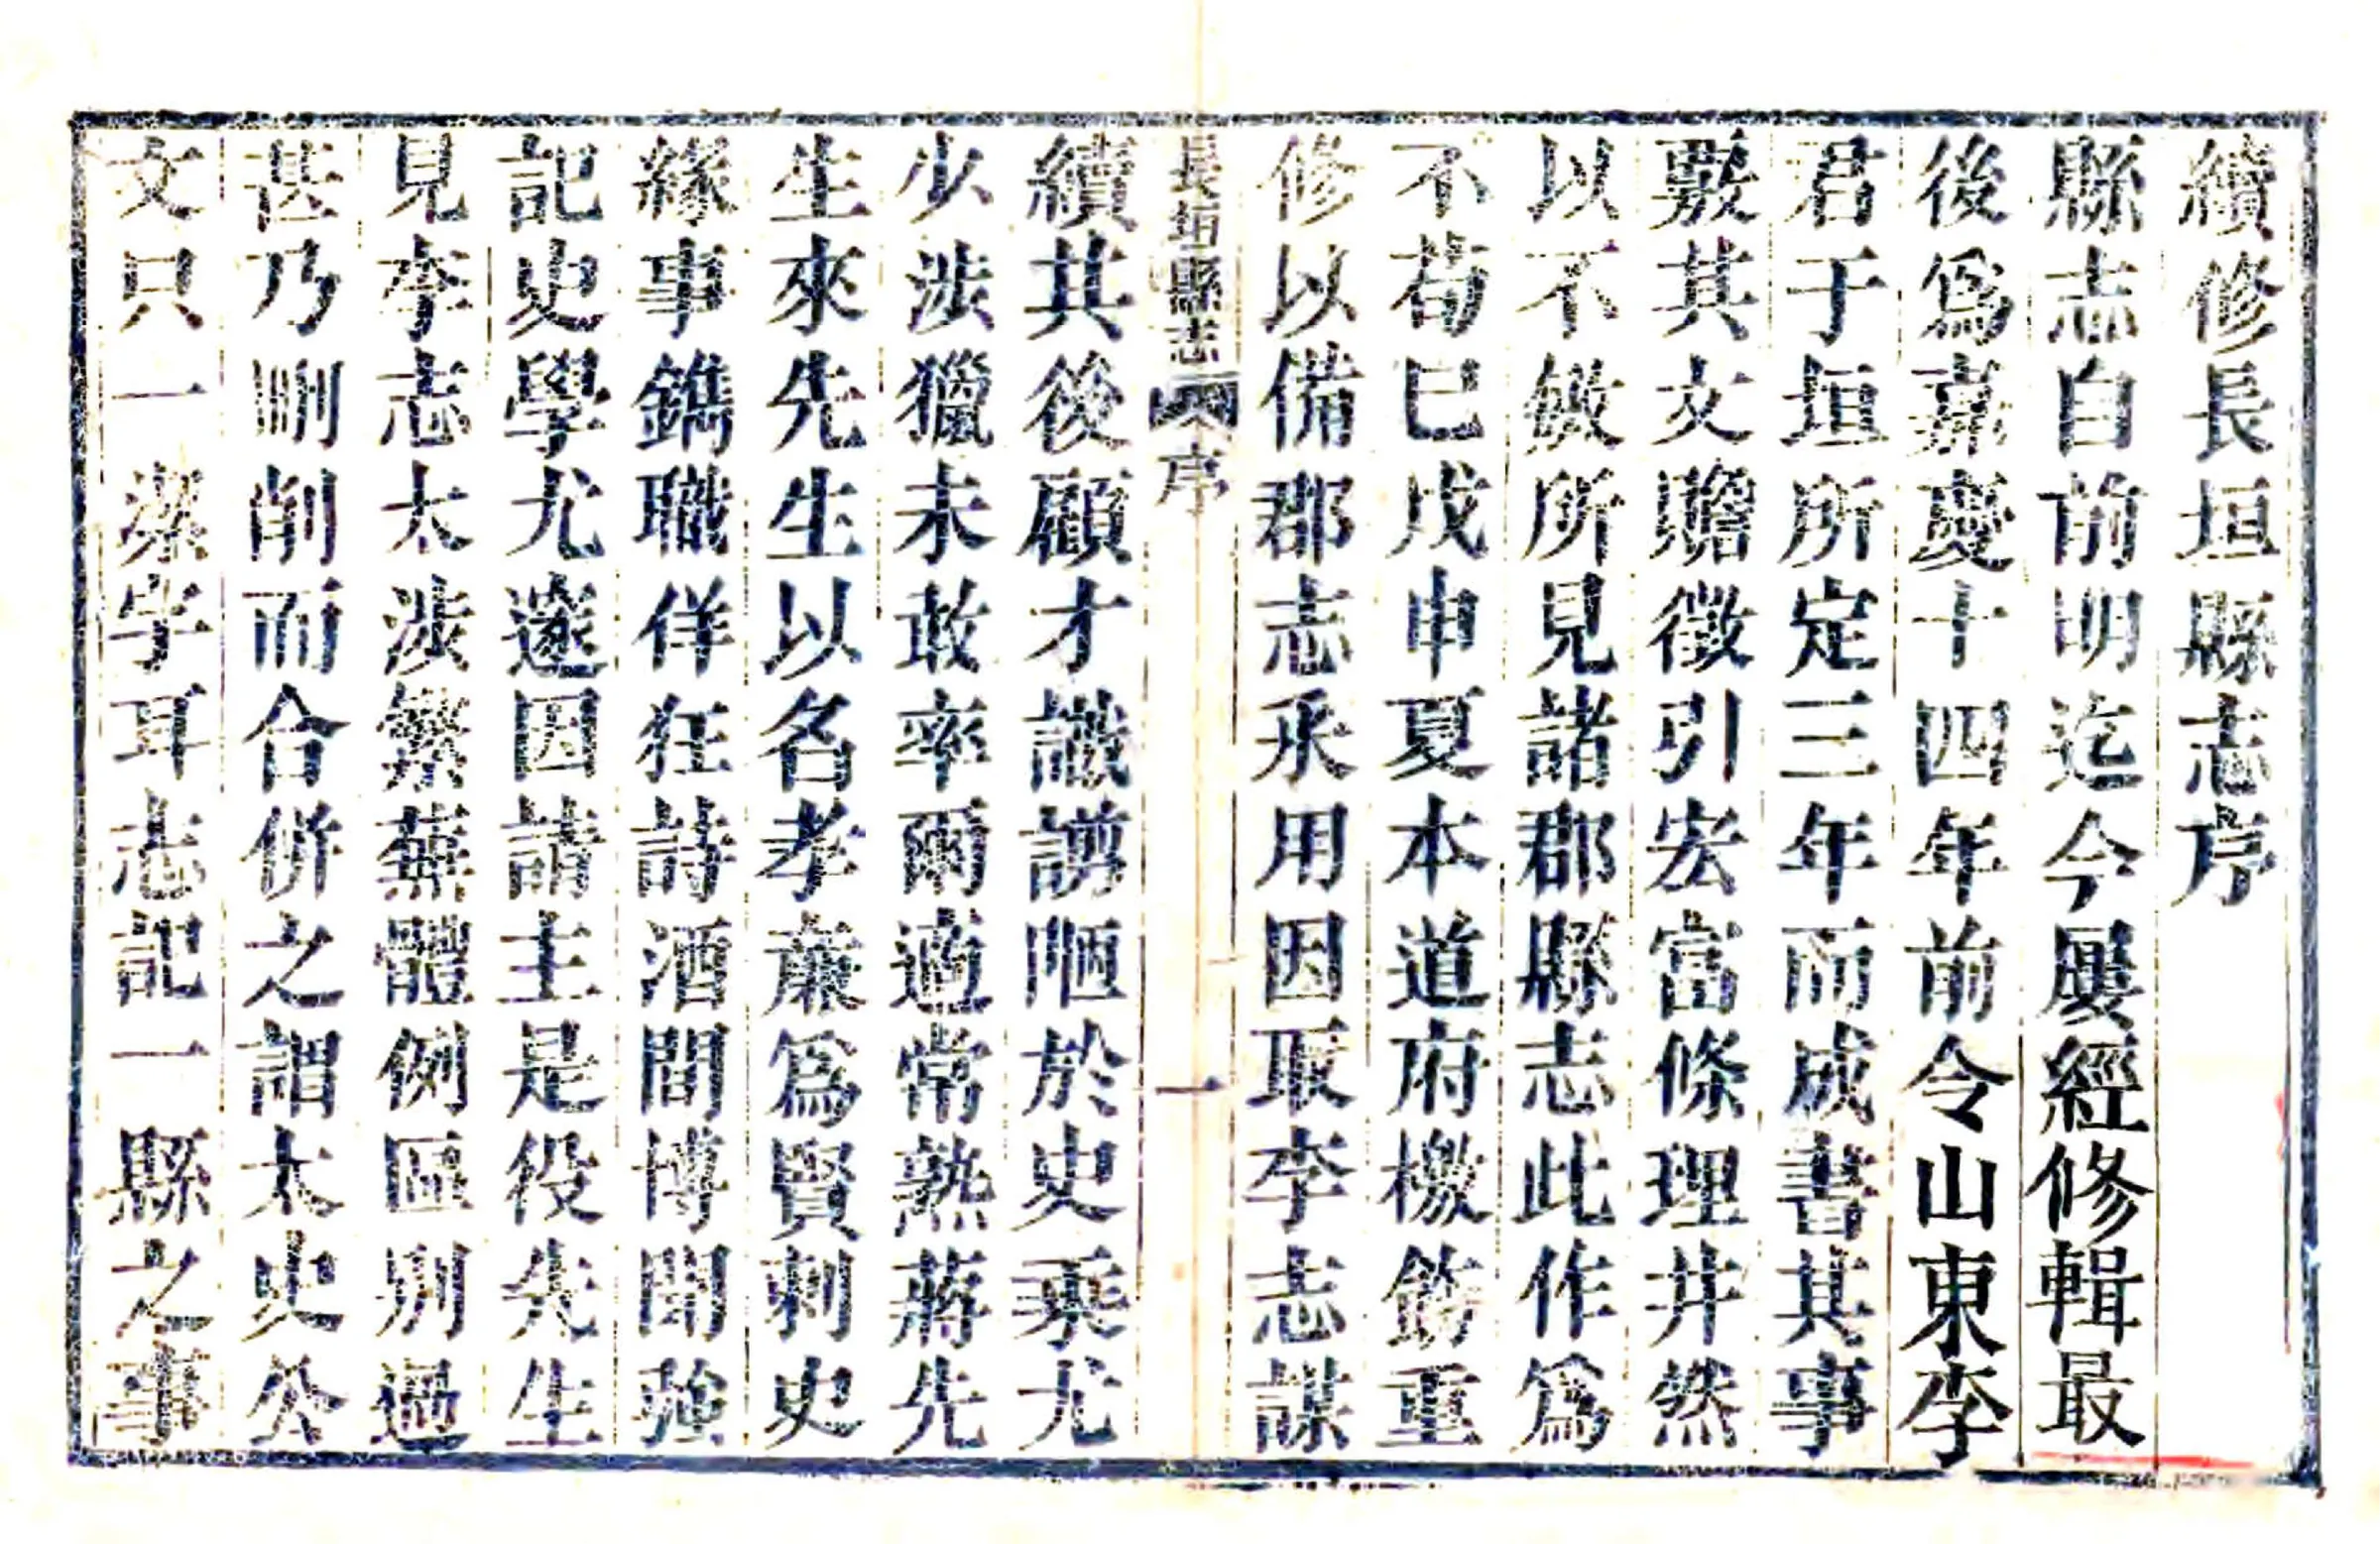 續修長垣縣志序
縣志自前明迄今屢經修輯最
後爲嘉慶十四年前令山東李
君于垣所定三年而成書其事
覈其文贍徵引宏富條理井然
以不敏所見諸郡縣志此作爲
不苟已戊申夏本道府檄飭重
修以備郡志采用因取李志謀
長垣縣志 序 一
續其後顧才謭陋於史乘尤
少涉獵未敢率爾適常熟蔣先
生來先生以名孝廉爲賢刺史
緣事鐫職佯狂詩酒間博聞强
記史學尤邃因請主是役先生
見李志太涉繁蕪體例區別過
甚乃刪削而合併之謂太史公
文只一潔字耳志記一縣之事